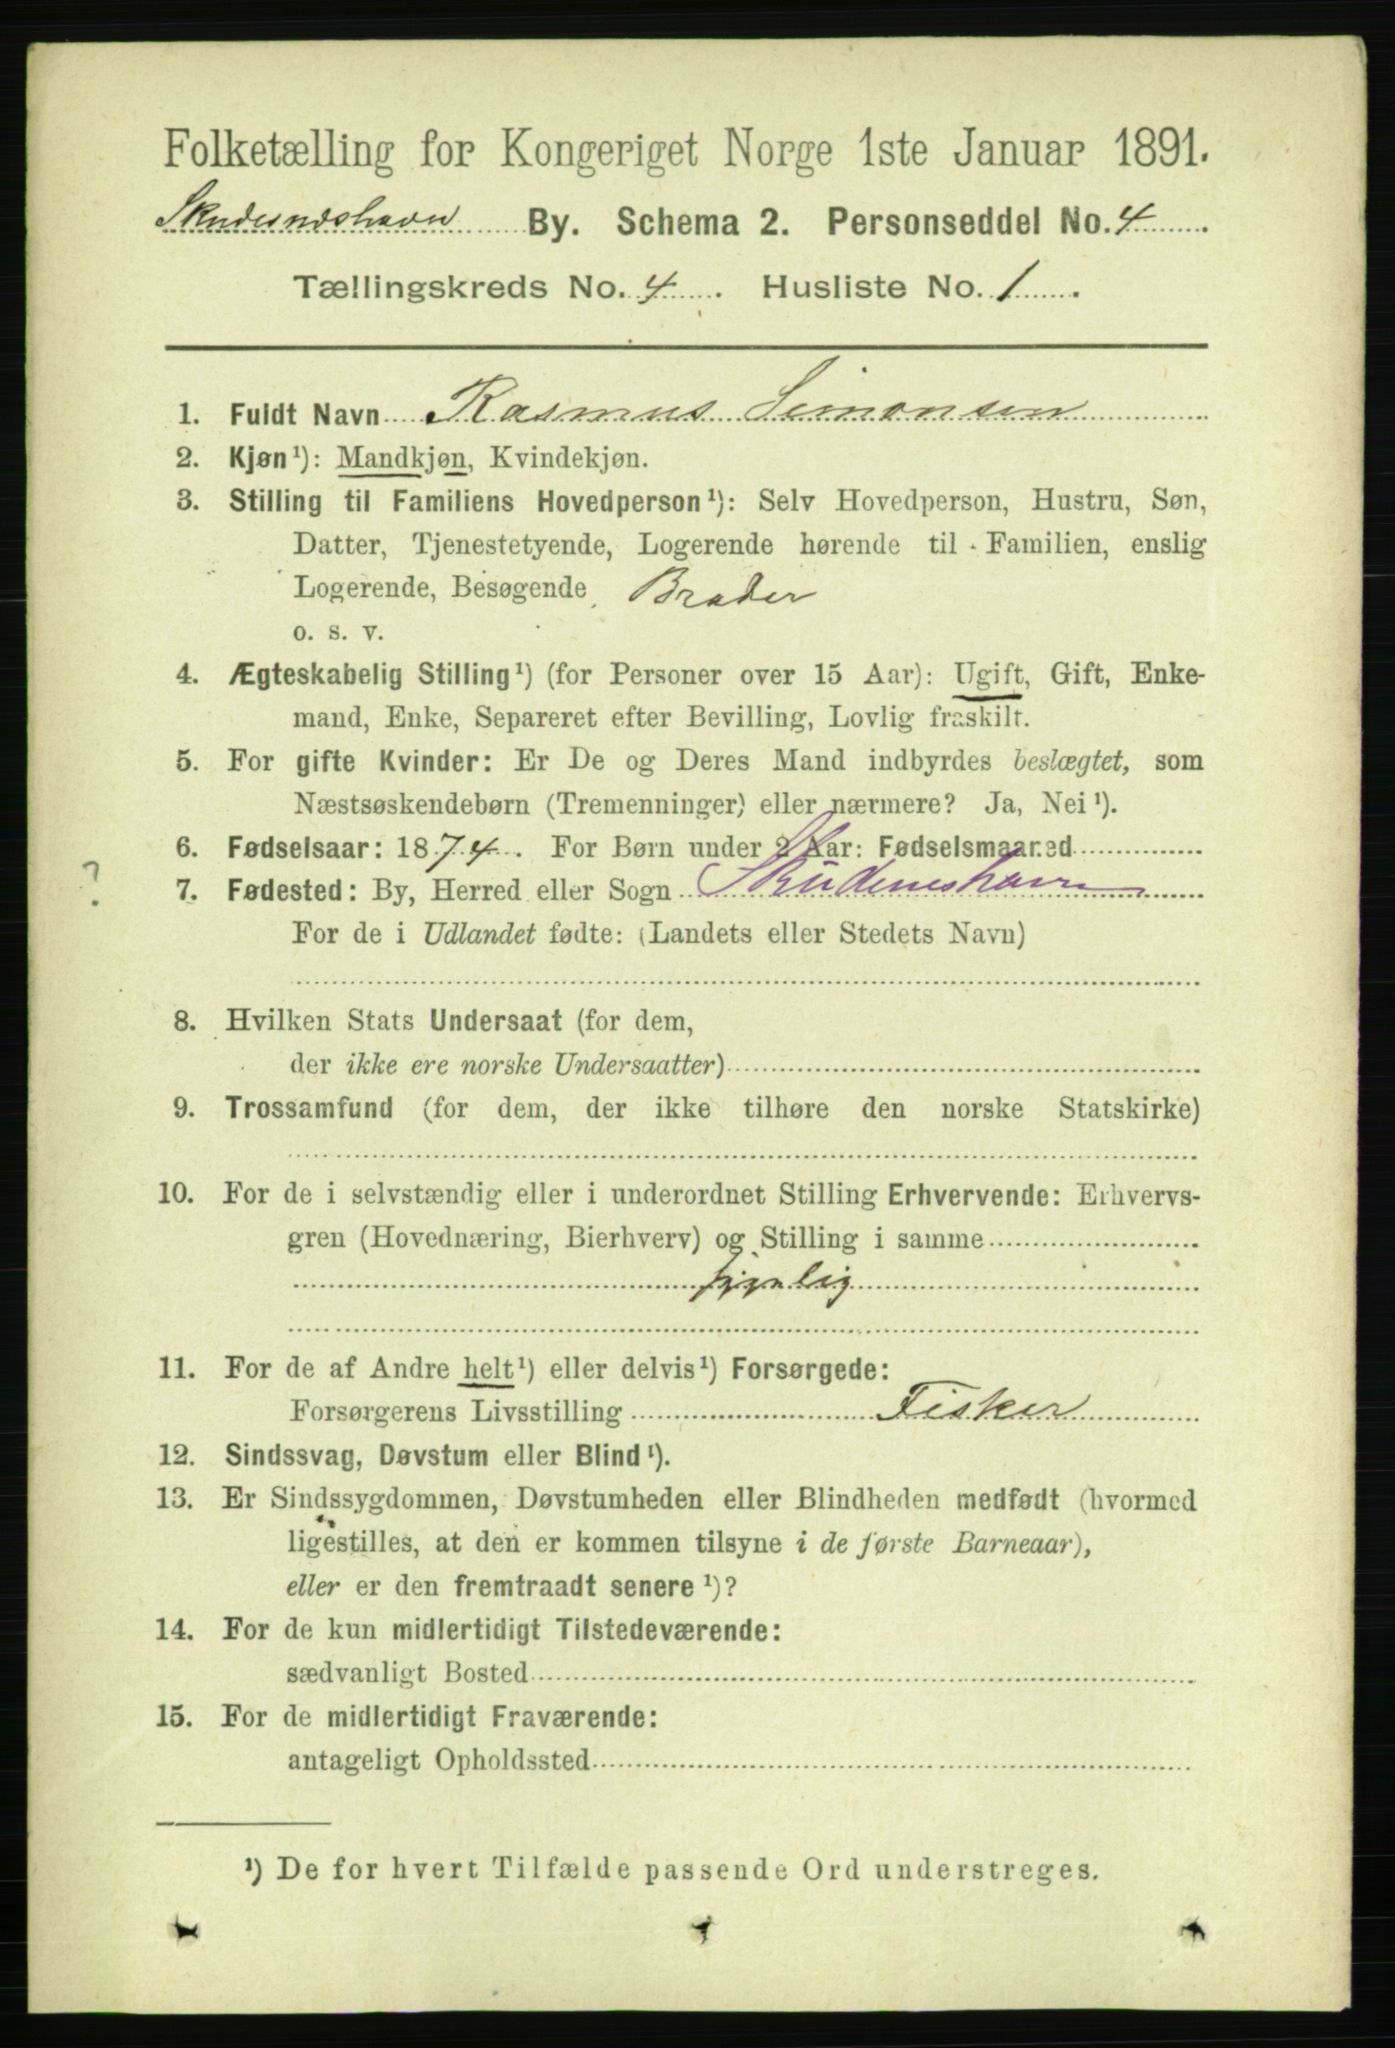 Folketælling for Kongeriget Norge 1ste Januar 1891.
Skudesneshavn By. Schema 2. Personseddel No. 4
Tællingskreds No. 4. Husliste No. 1.
1. Fuldt Navn Rasmus Simonsen
2. Kjøn¹): Mandkjøn, Kvindekjøn.
3. Stilling til Familiens Hovedperson¹): Selv Hovedperson, Hustru, Søn,
Datter, Tjenestetyende, Logerende hørende til Familien, enslig
Logerende, Besøgende, Broder
o. s. v.
4. Ægteskabelig Stilling¹) (for Personer over 15 Aar): Ugift, Gift, Enke-
mand, Enke, Separeret efter Bevilling, Lovlig fraskilt.
5. For gifte Kvinder: Er De og Deres Mand indbyrdes beslægtet, som
Næstsøskendebørn (Tremenninger) eller nærmere? Ja, Nei¹).
6. Fødselsaar: 1874. For Børn under 2 Aar: Fødselsmaaned
?
7. Fødested: By, Herred eller Sogn Skudeneshavn
For de i Udlandet fødte: (Landets eller Stedets Navn)
8. Hvilken Stats Undersaat (for dem,
der ikke ere norske Undersaatter)
9. Trossamfund (for dem, der ikke tilhøre den norske Statskirke)
10. For de i selvstændig eller i underordnet Stilling Erhvervende: Erhvervs-
gren (Hovednæring, Bierhverv) og Stilling i samme
11. For de af Andre helt¹) eller delvis¹) Forsørgede:
Forsørgerens Livsstilling Fisker
12. Sindssvag, Døvstum eller Blind¹).
13. Er Sindssygdommen, Døvstumheden eller Blindheden medfødt (hvormed
ligestilles, at den er kommen tilsyne i de første Barneaar),
eller er den fremtraadt senere¹)?
14. For de kun midlertidigt Tilstedeværende:
sædvanligt Bosted
15. For de midlertidigt Fraværende:
antageligt Opholdssted
¹) De for hvert Tilfælde passende Ord understreges.